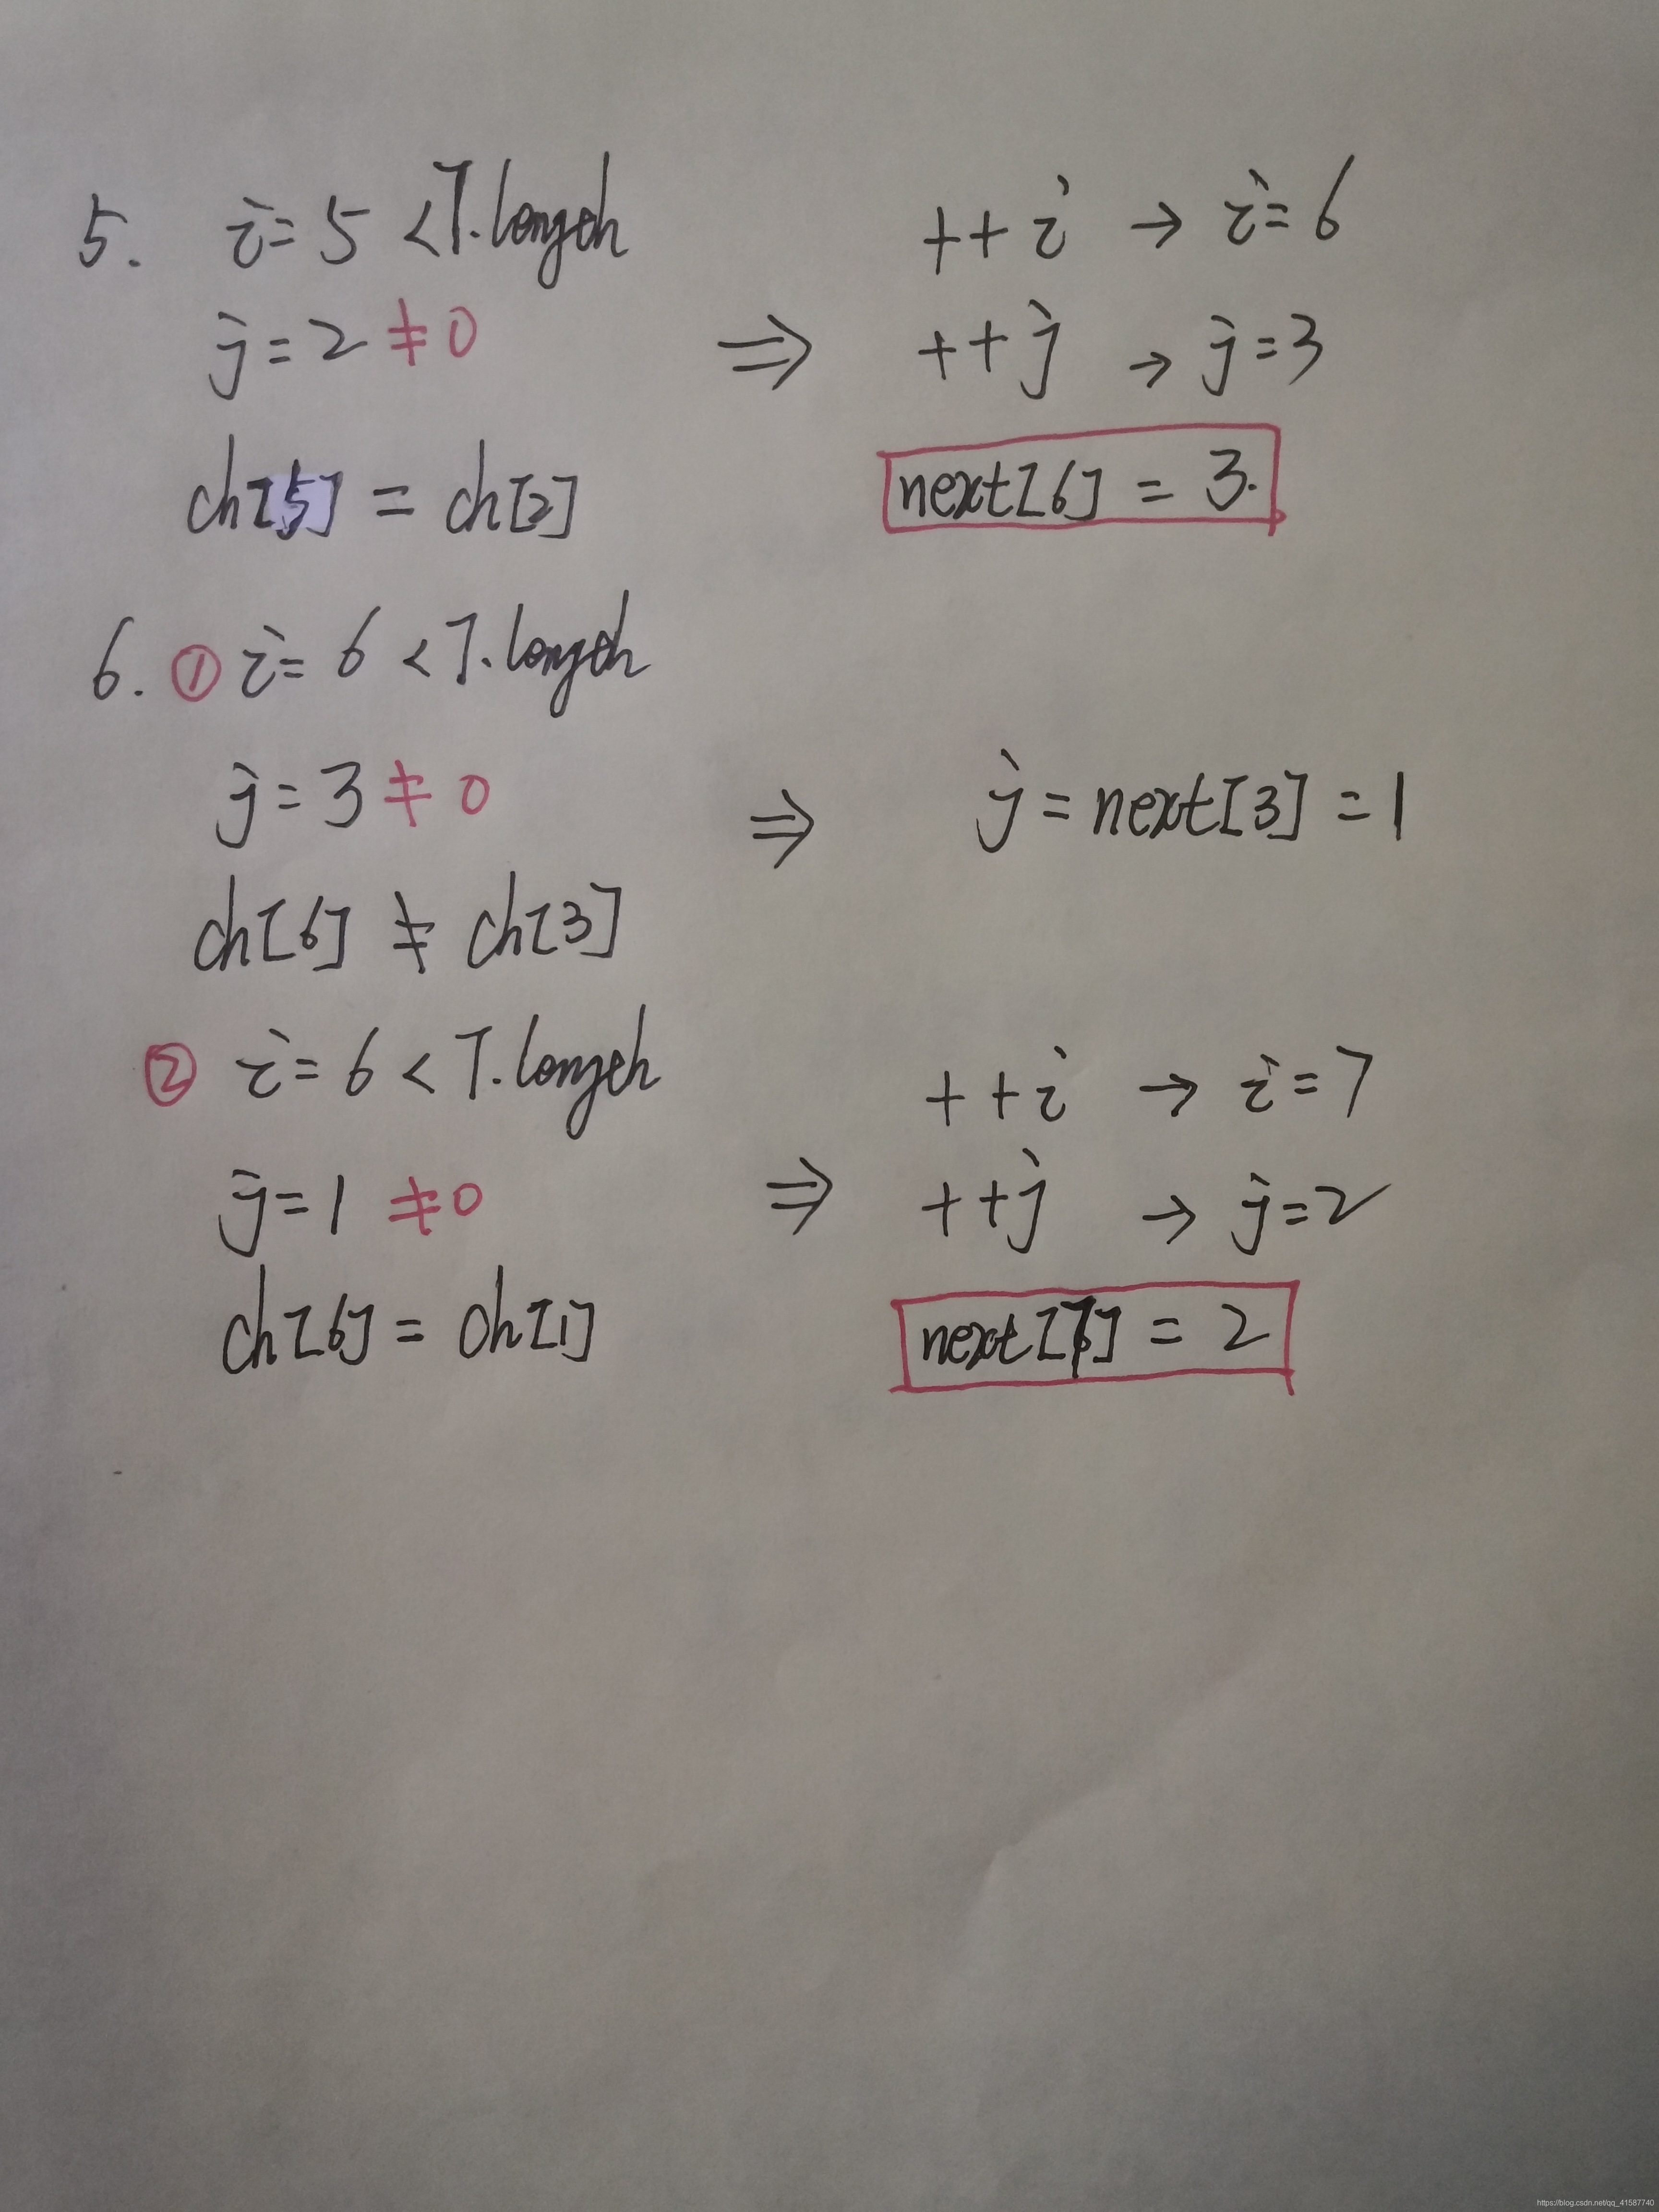 5. i=5 <T.length ++i → i=6
j=2 ≠0 ⇒ ++j → j=3
ch[5] = ch[2] next[6] = 3.
6. ① i=6 <T.length
j=3 ≠ 0 ⇒ j=next[3]=1
ch[6] ≠ ch[3]
② i=6 < T.length ++i → i=7
j=1 ≠0 ⇒ ++j → j=2
ch[6] = ch[1] next[7] = 2
https://blog.csdn.net/qq_41587740